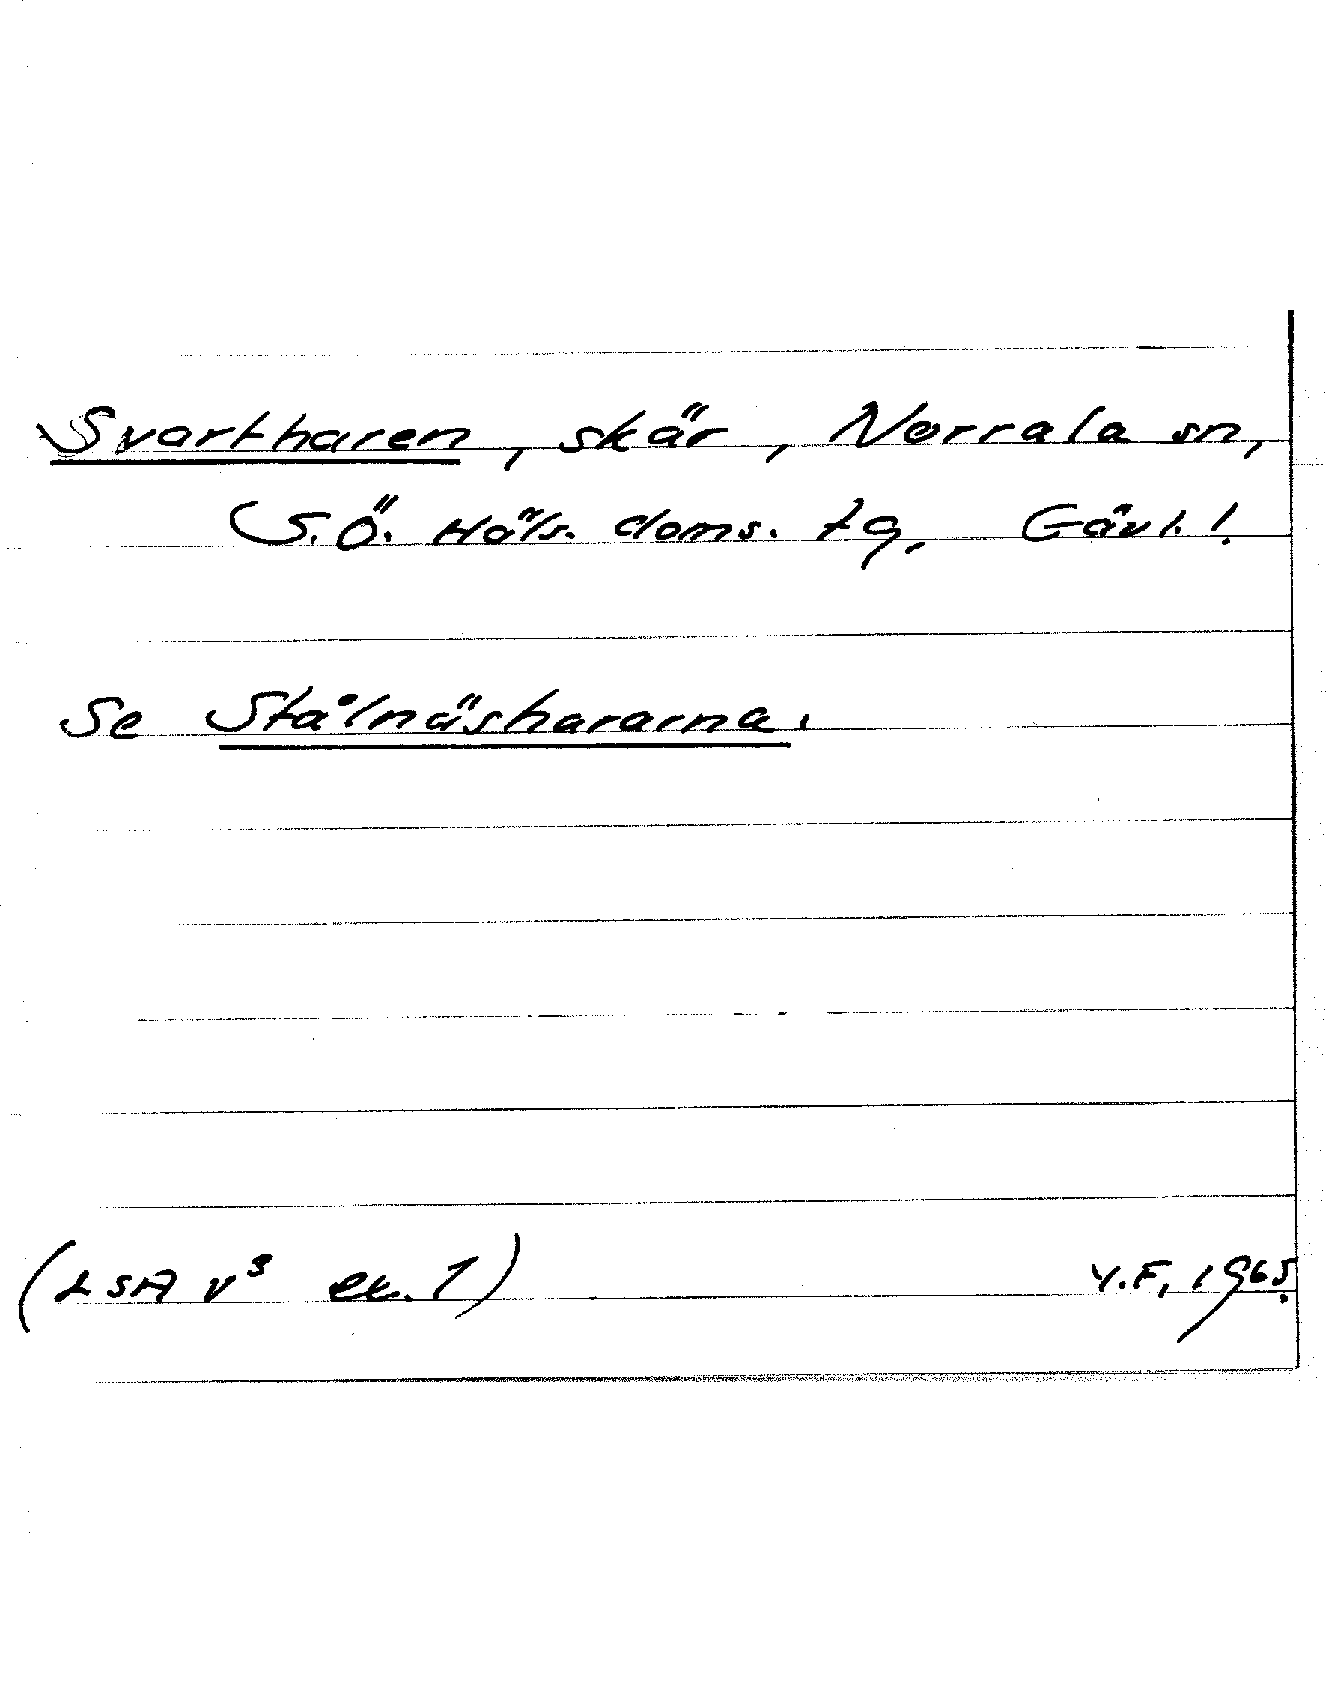 Svartharen, skär, Norrala sn,
S.Ö. Häls. doms. tg, Gävl. l.
Se Stålnäshararna.
(LSA v³ ek. 1) Y.F, 1965.